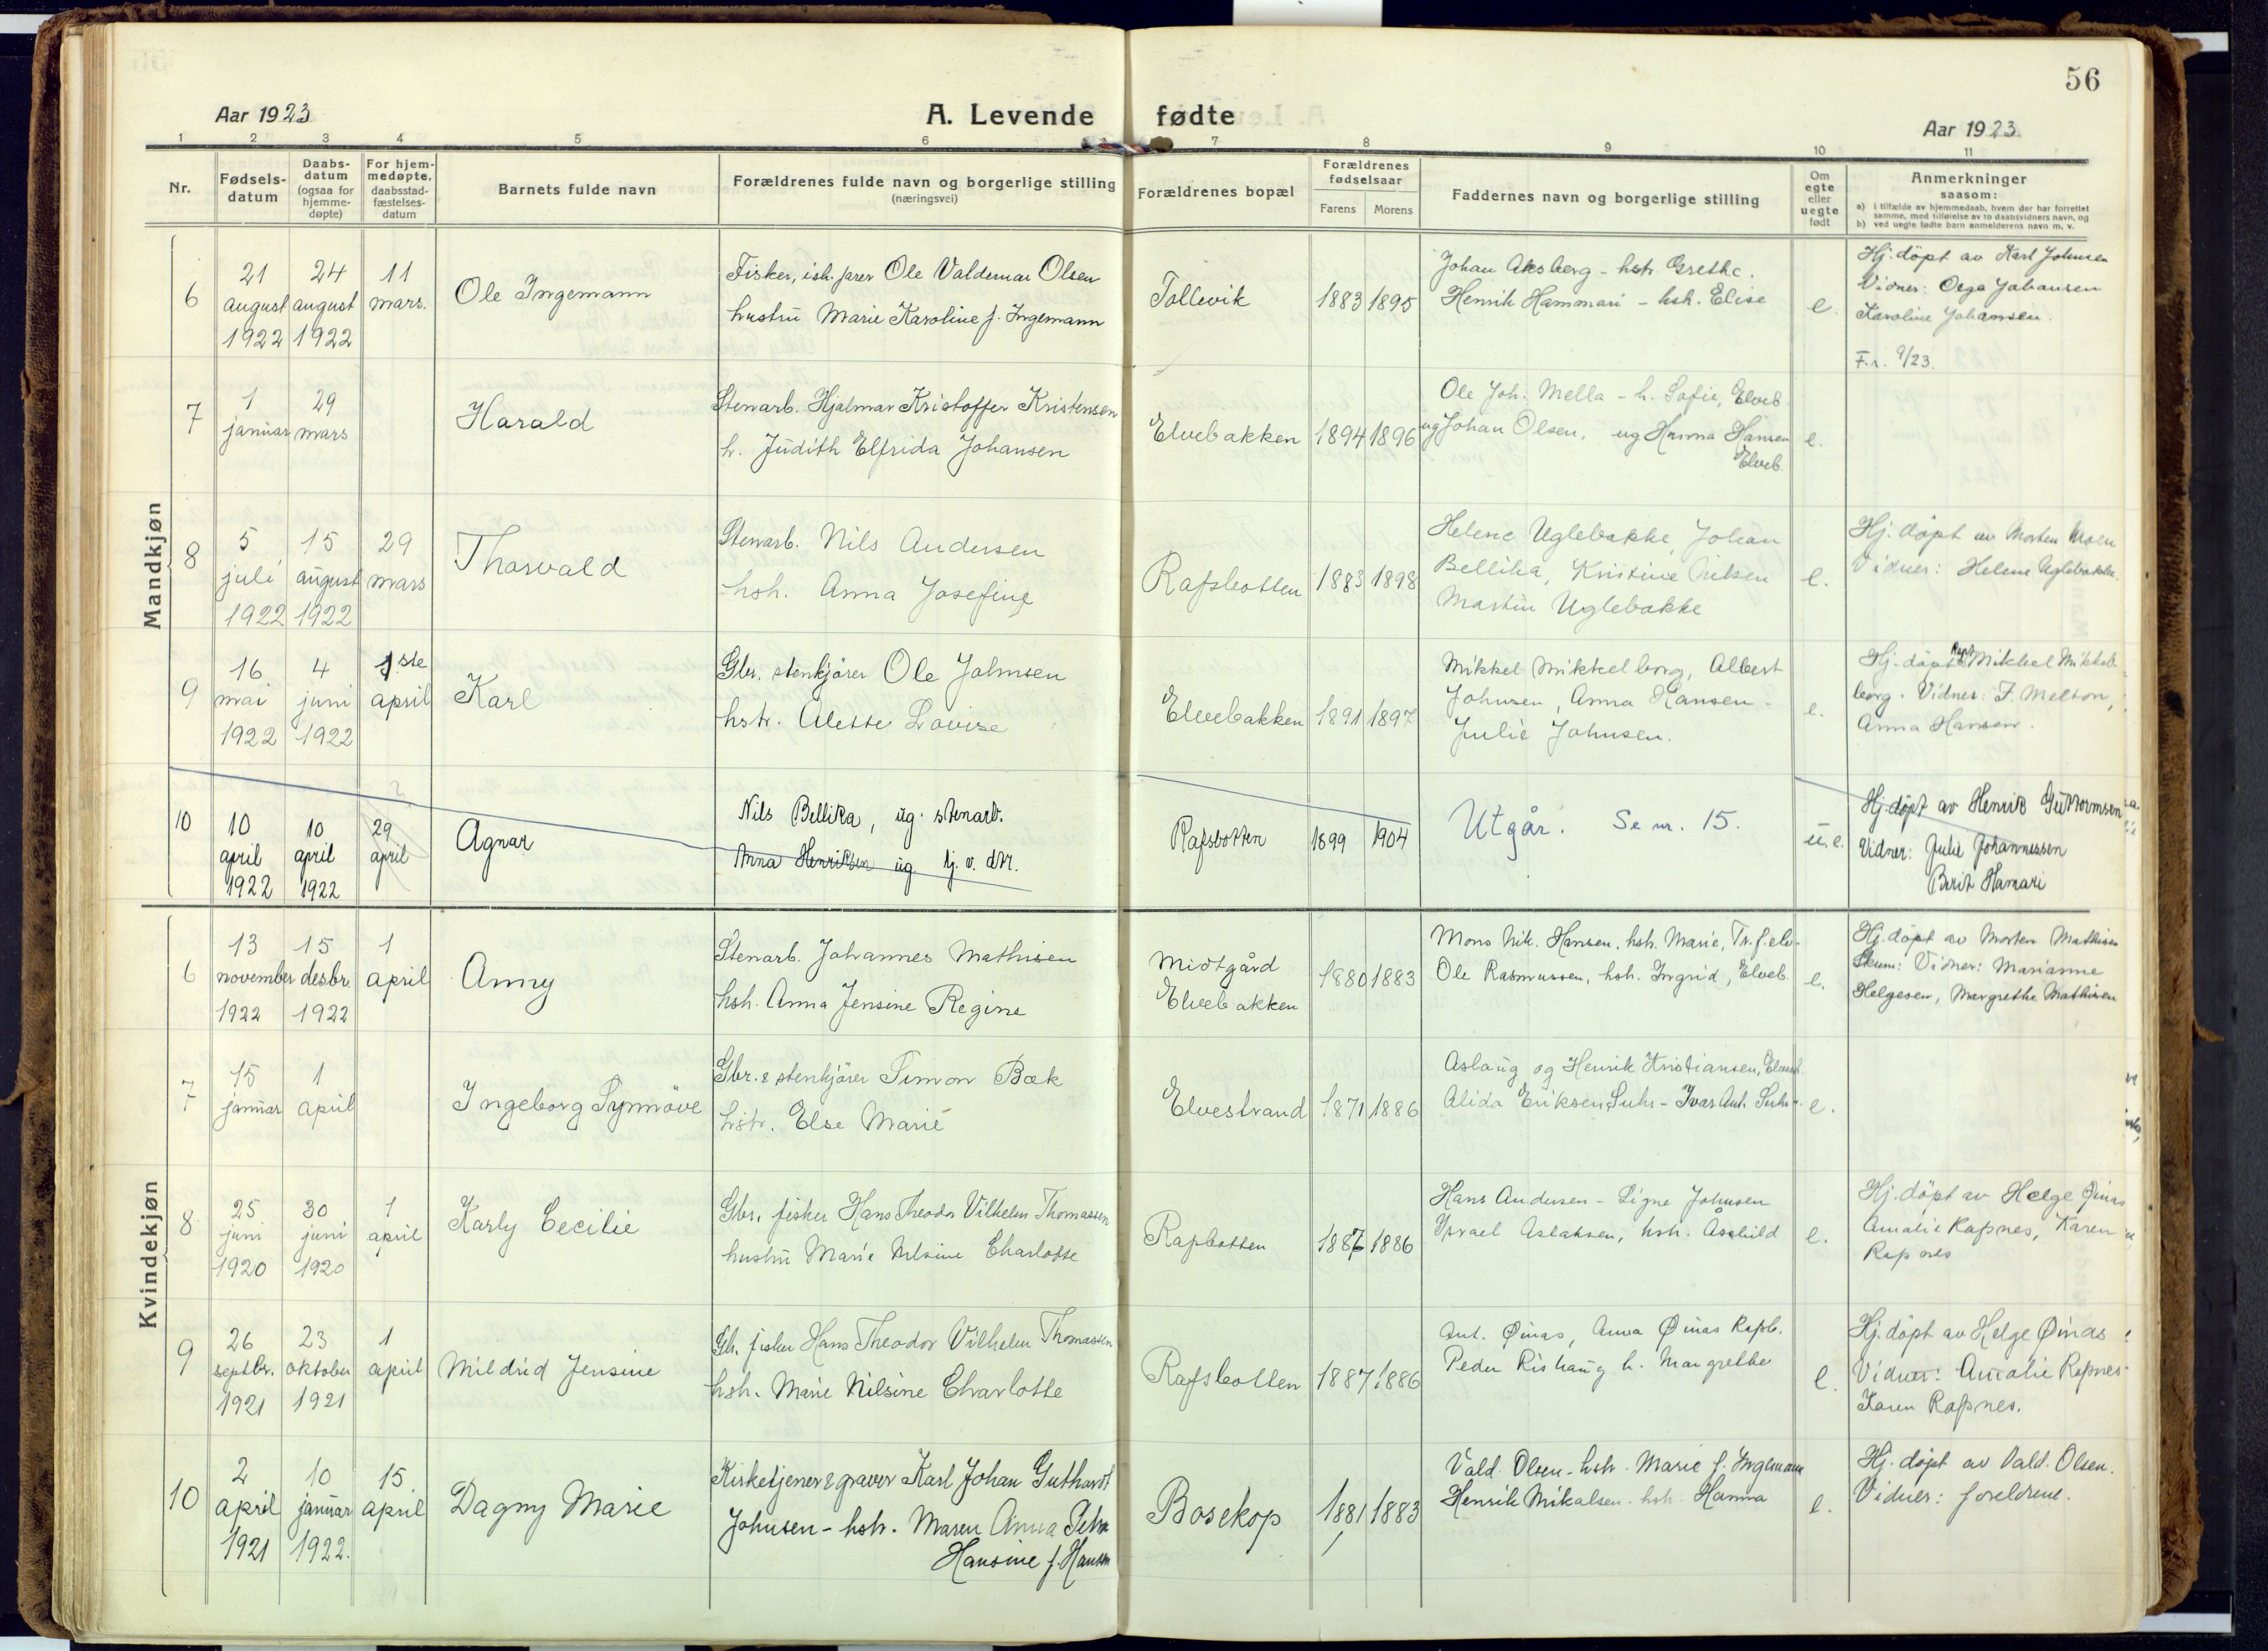 56
Aar 1923
A. Levende fødte
Aar 1923.
1 2 3 4 5 6 7 8 9 10 11
Nr.
Fødsels-
datum
Daabs-
datum
(ogsaa for
hjemme-
døpte)
For hjem-
medøpte,
daabsstad-
fæstelses-
datum
Barnets fulde navn
Forældrenes fulde navn og borgerlige stilling
(næringsvei)
Forældrenes bopæl
Forældrenes
fødselsaar
Farens Morens
Faddernes navn og borgerlige stilling
Om
egte
eller
uegte
født
Anmerkninger
saasom:
a) i tilfælde av hjemmedaab, hvem der har forrettet
samme, med tilføielse av to daabsvidners navn, og
b) ved uegte fødte barn anmelderens navn m. v.
Mandkjøn
6
21
august
1922
24
august
1922
11
mars.
Ole Ingemann
Fisker, ish. Ole Valdemar Olsen
hustru Marie Karoline f. Ingemann
Tollevik
1883 1895
Johan Aksberg - hstr. Grethe.
Henrik Hammari - hsh. Elise
e.
Hj. döpt av Karl Johnsen
Vidner: Johansen
Karoline Johansen.
F.r. 9/23.
7
1
januar
29
mars
Harald
Stenarb. Hjalmar Kristoffer Kristensen
h. Judith Elfrida Johansen
Elvebakken
1894 1896
Ole Joh. Mella - h. Sofie, Elveb.
ug Johan Olsen, ug Hanna Hansen
Elveb.
e.
8
5
juli
1922
15
august
1922
29
mars
Thorvald
Stenarb. Nils Andersen
hsh. Anna Josefine
Rafsbotten
1883 1898
Helene Uglebakke, Johan
Bellika, Kristine Nilsen
Martin Uglebakke
e.
Hj. döpt av Morten Moen
Vidner: Helene Uglebakke.
9
16
mai
1922
4
juni
1922
1ste
april
Karl
Gbr. stenkjörer Ole Johnsen
hstr. Alette Lovise
Elvebakken
1891 1897
Mikkel Mikkelborg, Albert
Johnsen, Anna Hansen -
Julie Johnsen.
e.
Hj. döpt Mikkel Mikkel-
borg. Vidner: F. Melton,
Anna Hansen.
10
10
april
1922
10
april
1922
?
29
april
Agnar
Nils Bellika, ug. stenarb.
Anna Henriksen ug. tj. v. dtr.
Rafsbotten
1899 1904
Utgår. Se nr. 15.
u.e.
Hj. döpt av Henrik Guttormsen
Vidner: Julie Johannessen
Berit Hamari
Kvindekjøn
6
13
november
1922
15
desbr.
1922
1
april
Anny
Stenarb. Johannes Mathisen
hsh. Anna Jensine Regine
Midtgård
Elvebakken
1880 1883
Mons Nik. Hansen, hsh. Marie,
Ole Rasmussen, hsh. Ingrid, Elveb.
e.
Hj. döpt av Morten Mathisen
Skum: Vidner: Marianne
Helgesen, Margrethe Mathisen
7
15
januar
1
april
Ingeborg Synnöve
Gbr. & stenkjörer Simon Bæk
hstr. Else Marie
Elvestrand
1871 1886
Aslaug og Henrik Kristiansen,
Alida Eriksen Suhr - Ivar Ant. Suhr
e.
8
25
juni
1920
30
juni
1920
1
april
Karly Cecilie
Gbr. fisker Hans Theodor Vilhelm Thomassen
hustru Marie Nilsine Charlotte
Rafsbotten
1887 1886
Hans Andersen - Signe Johnsen
Israel Aslaksen, hsh.
e.
Hj. döpt av Helge Øinas
Amalie Rafsnes, Karen
Rafsnes
9
26
septbr.
1921
23
oktober
1921
1
april
Mildrid Jensine
Gb. fisker Hans Theodor Vilhelm Thomassen
hsh. Marie Nilsine Charlotte
Rafsbotten
1887 1886
Ant. Øinas, Anna Øinas Rafsb.
Peder Rishaug h. Margrethe
e.
Hj. döpt av Helge Øinas
Vidner: Amalie Rafsnes-
Karen Rafsnes.
10
2
april
1921
10
januar
1922.
15
april
Dagny Marie
Kirketjener & graver Karl Johan Guthardt
Johnsen - hstr. Maren Anna Petra
Hansine f. Hansen
Bosekop
1881 1883
Vald. Olsen - hstr. Marie f. Ingemann
Henrik Mikalsen - hsh. Hanna
e.
Hj. döpt av Vald. Olsen.
Vidner: foreldrene.